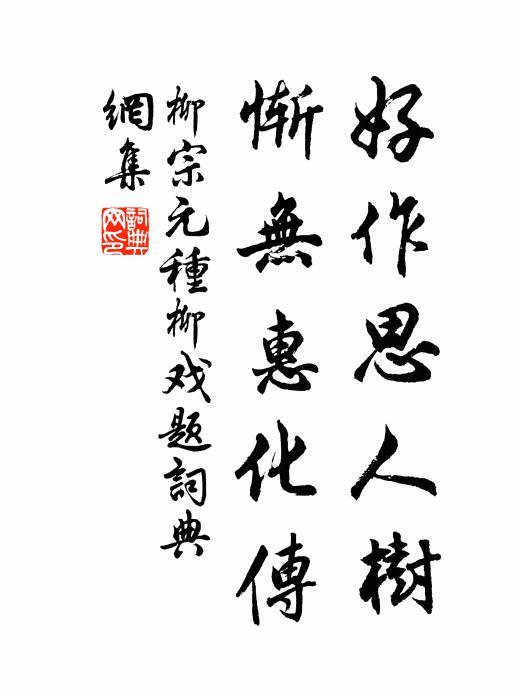 好作思人樹
慚無惠化傳
柳宗元種柳戏题詞典
網集
詞典
网印